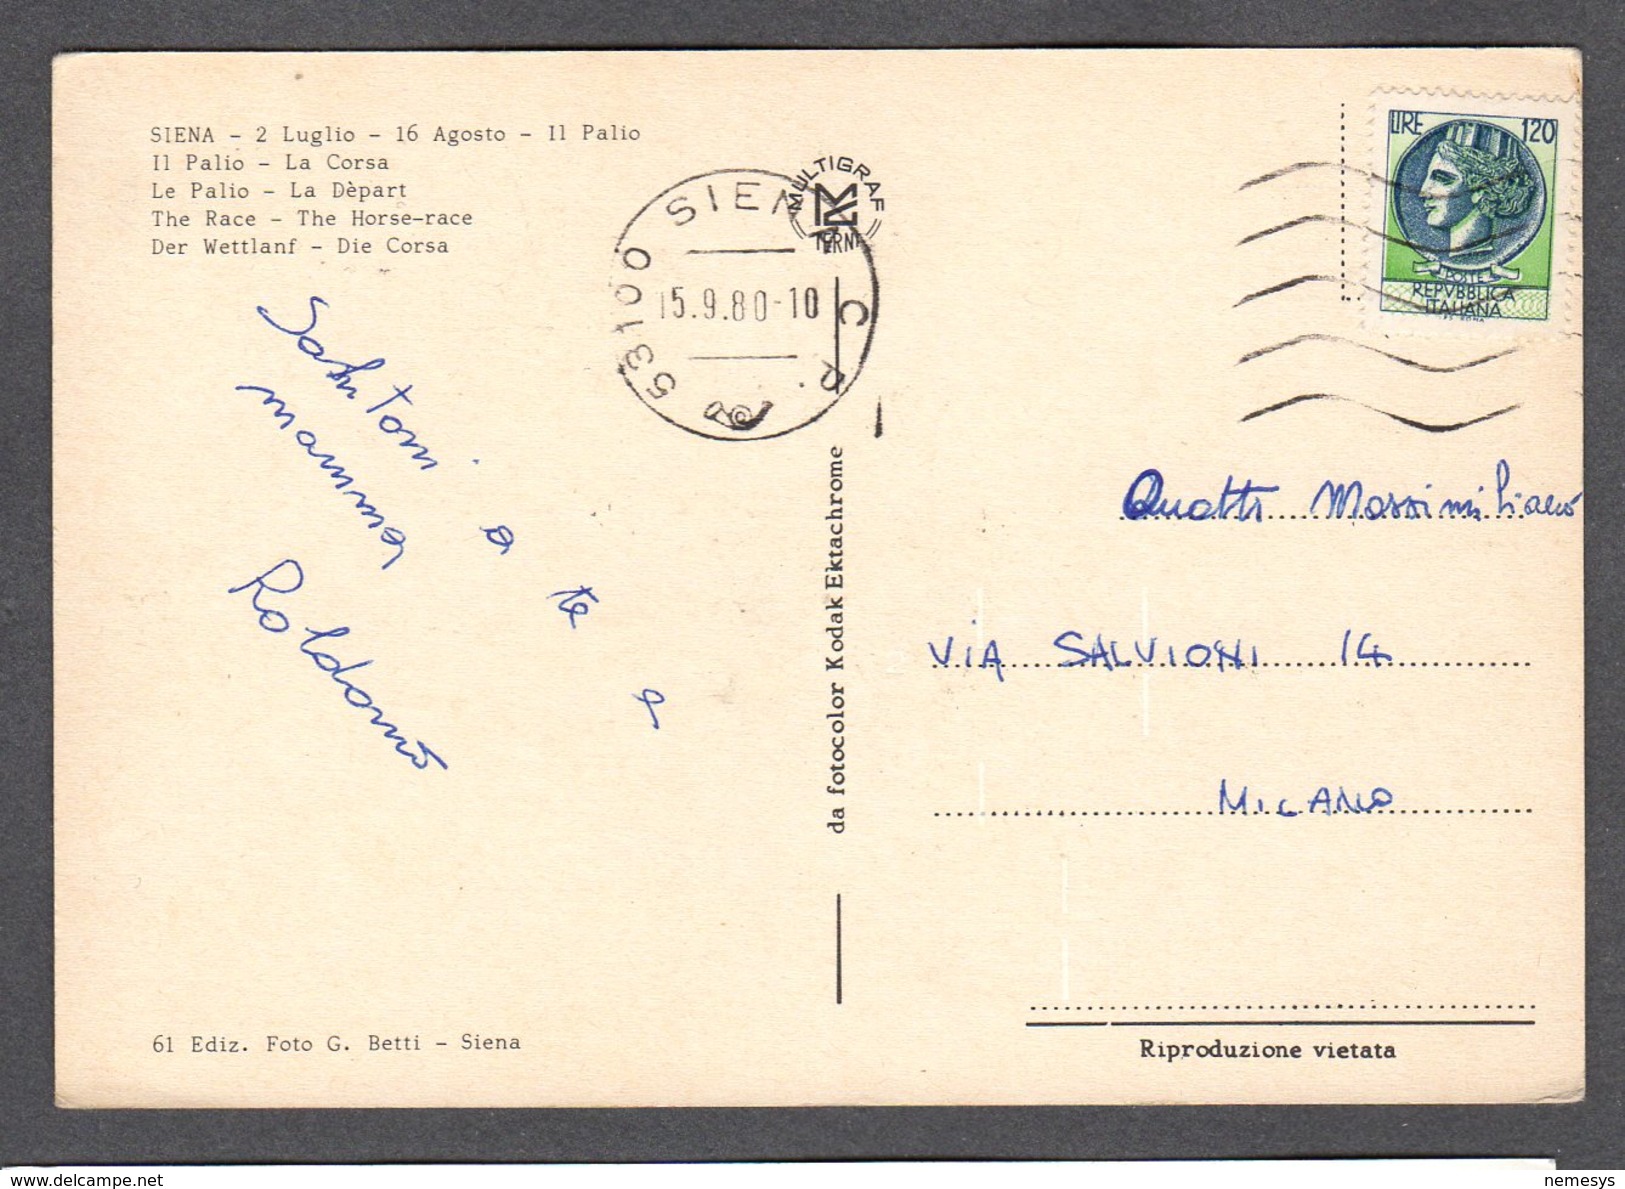 SIENA - 2 Luglio - 16 Agosto - Il Palio
Il Palio - La Corsa
Le Palio - La Dèpart
The Race - The Horse-race
Der Wettlanf - Die Corsa
53100 SIENA C.P.
15.9.80-10
MULTIGRAF
TERNI
LIRE 120
POSTE
REPVBBLICA
ITALIANA
Salutoni a te e
mamma
Roldano
da fotocolor Kodak Ektachrome
Quatti Massimiliano
VIA SALVIONI 14
MILANO
61 Ediz. Foto G. Betti - Siena
Riproduzione vietata
www.delcampe.net
nemesys